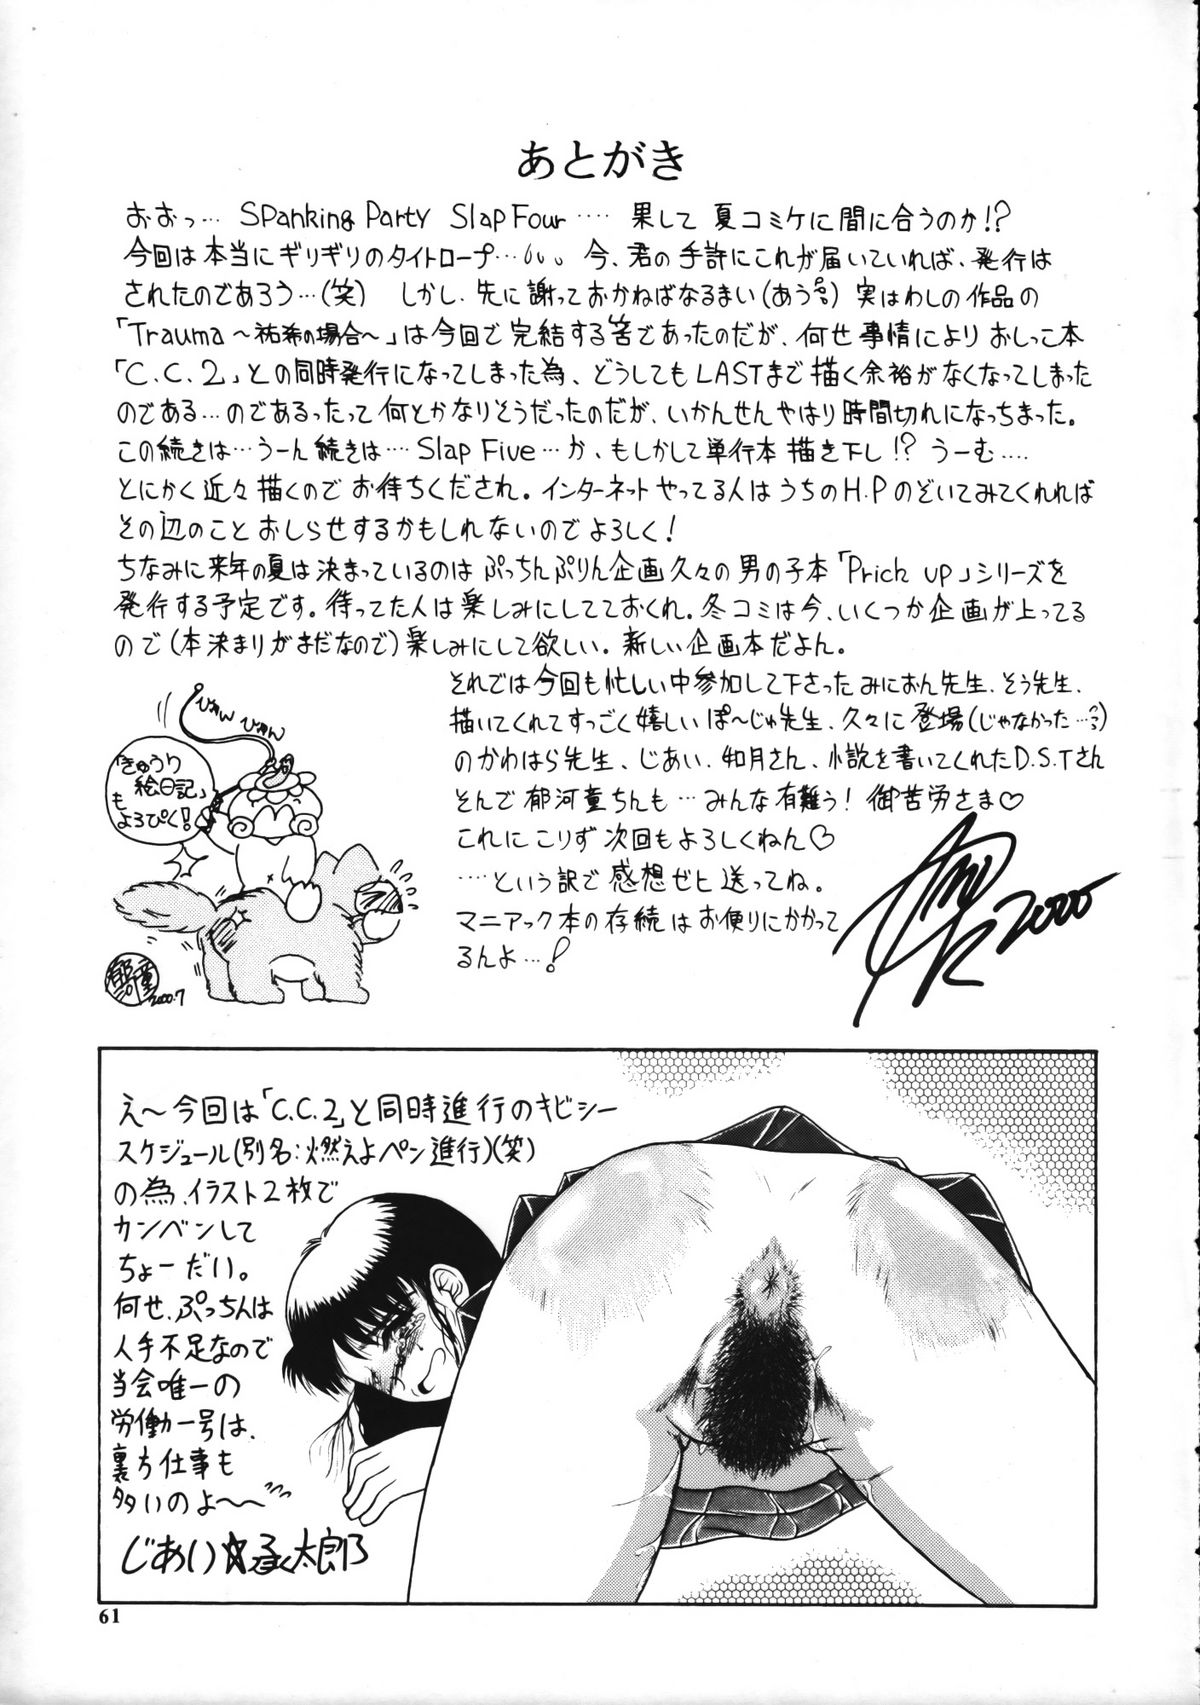 あとがき
おおっ… Spanking Party Slap Four …. 果して 夏コミケに間に合うのか!?
今回は本当にギリギリのタイトロープ… 今、君の手許にこれが届いていれば、発行は
されたのであろう…(笑) しかし、先に謝っておかねばなるまい(あうぅ) 実はわしの作品の
「Trauma〜祐希の場合〜」は今回で完結する筈であったのだが、何せ事情により おしっこ本
「C.C.2」との同時発行になってしまった為、どうしてもLASTまで描く余裕がなくなってしまった
のである…のであるったって何とかなりそうだったのだが、いかんせんやはり時間切れになっちまった。
この続きは…うーん続きは…. Slap Five…か、もしかして単行本描き下し!? うーむ….
とにかく近々描くのでお待ちくだされ。インターネットやってる人はうちのH.Pのぞいてみてくれれば
その辺のことおしらせするかもしれないのでよろしく!
ちなみに来年の夏は決まっているのは ぷっちんぷりん企画久々の男の子本「Prich up」シリーズを
発行する予定です。待ってた人は楽しみにしてておくれ。冬コミは今、いくつか企画が上ってる
ので(本決まりがまだなので)楽しみにして欲しい。新しい企画本だよん。
それでは今回も忙しい中参加して下さったみにおん先生、そう先生、
描いてくれてすっごく嬉しいぽ〜じゅ先生、久々に登場(じゃなかった…)
のかわはら先生、じあい、如月さん、小説を書いてくれたD.S.Tさん
そんで郁河童ちんも…みんな有難う! 御苦労さま♡
これにこりず次回もよろしくねん♡
….という訳で感想ゼヒ送ってね。
マニアック本の存続はお便りにかかって
るんよ…!
2000
ぴゅん
ぴゅん
「きゅうり
絵日記」
も
よろぴく!
郁河童
2000.7
え〜今回は「C.C.2」と同時進行のキビシー
スケジュール(別名:燃えよペン進行)(笑)
の為、イラスト2枚で
カンベンして
ちょーだい。
何せ、ぷっちんは
人手不足なので
当会唯一の
労働一号は、
裏方仕事も
多いのよ〜〜
じあい☆ふく太郎
61